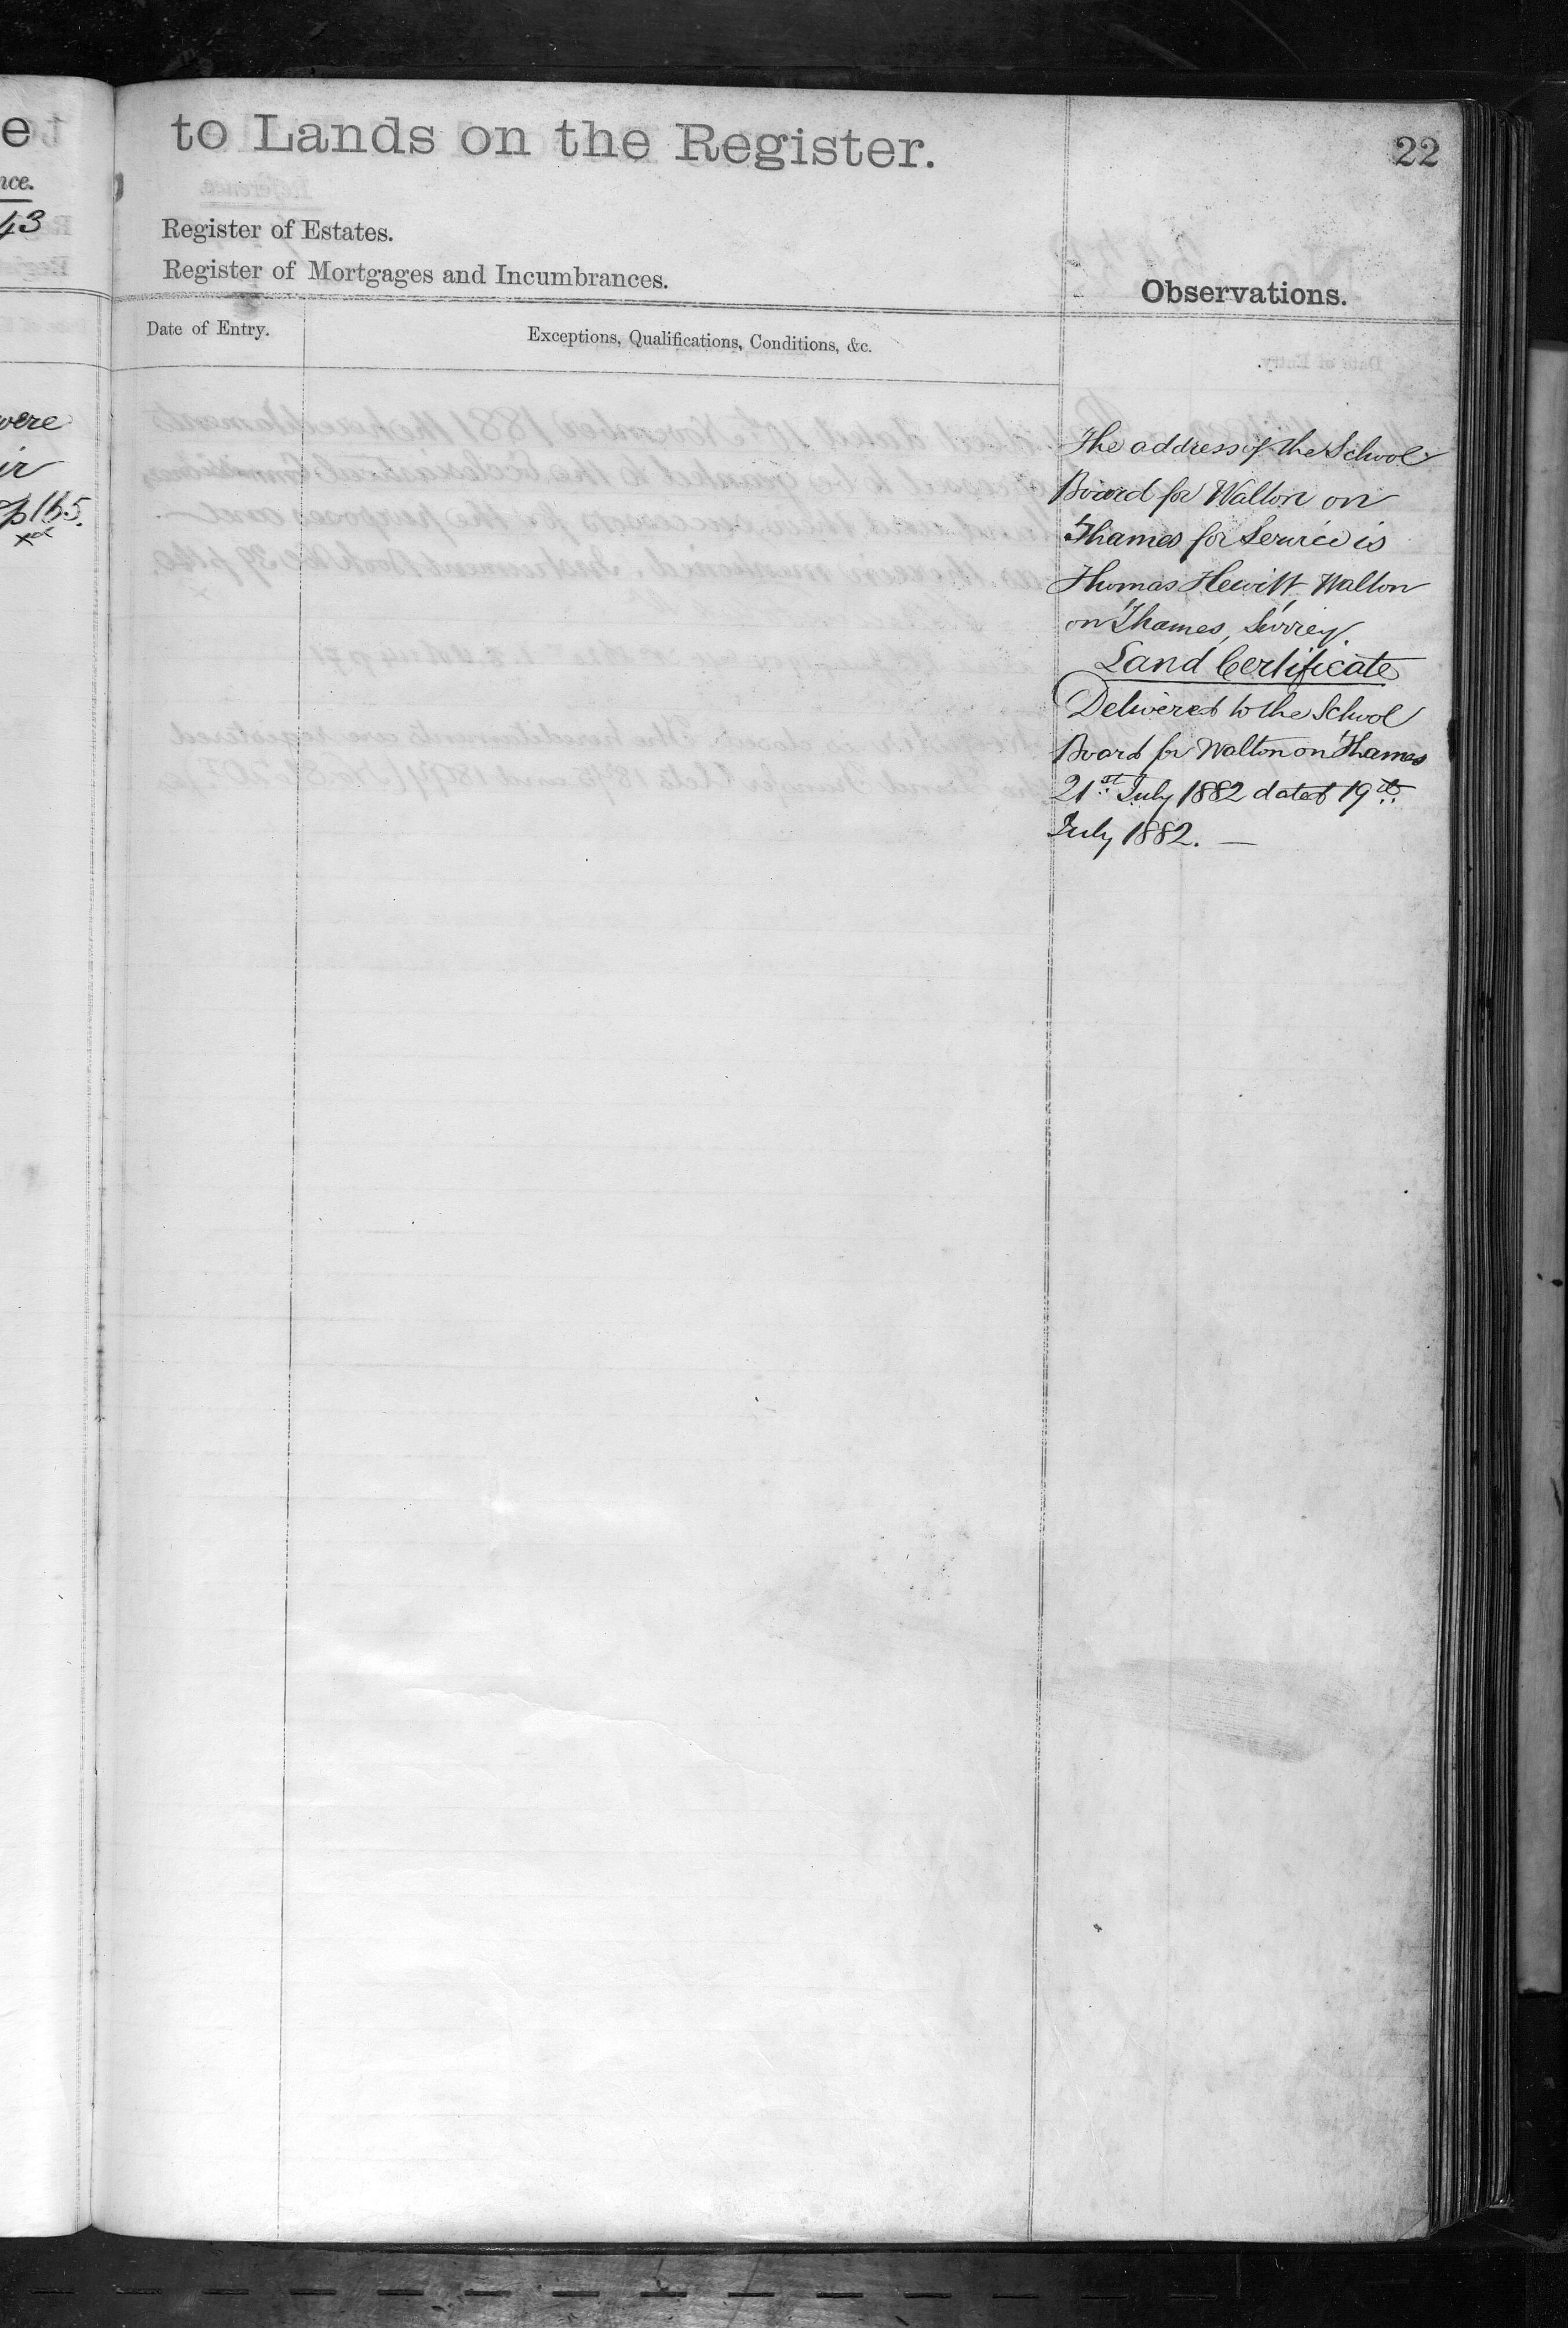 e
nce.
43
were
ir
p 165.
to Lands on the Register.
22
Register of Estates.
Register of Mortgages and Incumbrances.
Observations.
Date of Entry.
Exceptions, Qualifications, Conditions, &c.
The address of the School
Board for Walton on
Thames for Service is
Thomas Hewitt Walton
on Thames, Surrey.
Land Certificate
Delivered to the School
Board for Walton on Thames
21st July 1882 dated 19th
July 1882. —